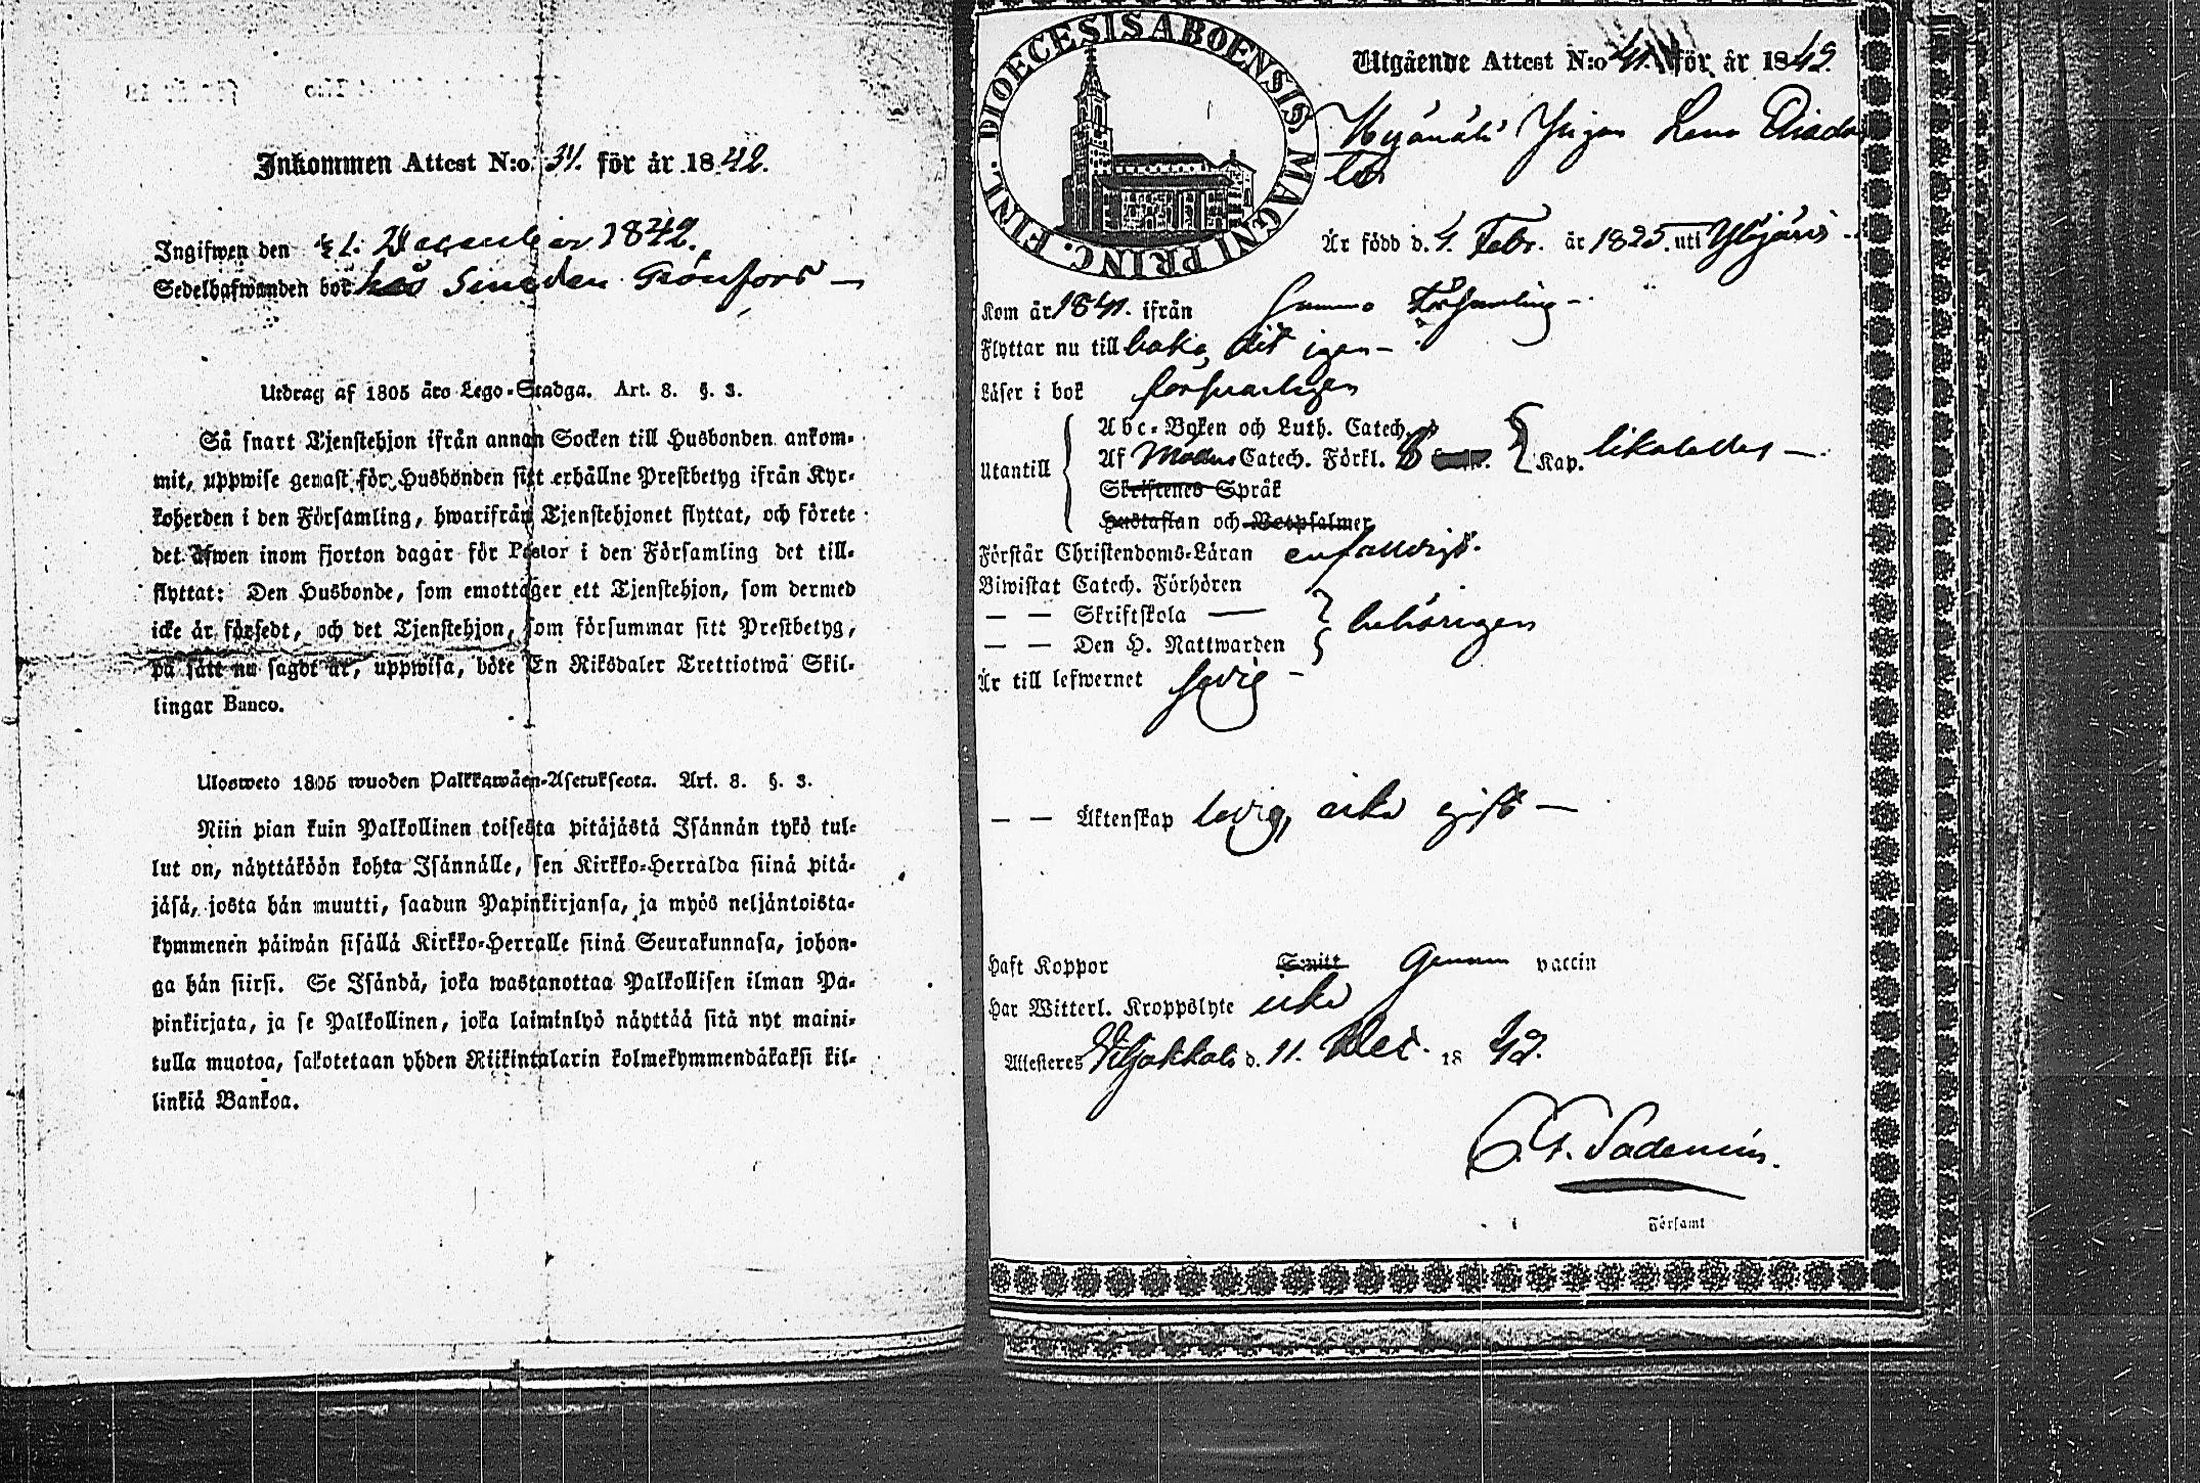 Inkommen Attest N:o 31. för år 1842.
Ingifwen den 21. December 1842.
Sedelhafwanden bor hos Smeden Grönfors —
Utdrag af 1805 års Lego-Stadga. Art. 8. §. 3.
Så snart Tjenstehjon ifrån annan Socken till Husbonden ankom-
mit, uppwise genast för Husbonden sitt erhållne Prestbetyg ifrån Kyr-
koherden i den Församling, hwarifrån Tjenstehjonet flyttat, och förete
det äfwen inom fjorton dagar för Pastor i den Församling det till-
flyttat: Den Husbonde, som emottager ett Tjenstehjon, som dermed
icke är försedt, och det Tjenstehjon, som försummar sitt Prestbetyg,
på sätt nu sagdt är, uppwisa, böte En Riksdaler Trettiotwå Skil-
lingar Banco.
Ulosweto 1805 wuoden Palkkawäen-Asetuksesta. Art. 8. §. 3.
Niin pian kuin Palkollinen toisesta pitäjästä Isännän tykö tul-
lut on, näyttäköön kohta Isännälle, sen Kirkko-Herralda siinä pitä-
jäsä, josta hän muutti, saadun Papinkirjansa, ja myös neljäntoista-
kymmenen päiwän sisällä Kirkko-Herralle siinä Seurakunnasa, johon-
ga hän siirsi. Se Isändä, joka wastanottaa Palkollisen ilman Pa-
pinkirjata, ja se Palkollinen, joka laiminlyö näyttää sitä nyt maini-
tulla muotoa, sakotetaan yhden Riikintalarin kolmekymmendäkaksi kil-
linkiä Bankoa.
DIOECESIS ABOENSIS MAGNI PRINC. FINL.
Utgående Attest N:o 41. för år 1842.
Pigan Lena
Är född d. 4. Febr. år 1825. uti Ylöjärvi -
Kom år 1841. ifrån samma Församling -
Flyttar nu till baka dit igen -
Läser i bok försvarligen
Utantill
Abc-Boken och Luth. Catech.
Af Möllers Catech. Förkl. Kap. likaledes —
Skriftenes Språk
Hustaflan och Botpsalmer
Förstår Christendoms-Läran enfalldigt.
Biwistat Catech. Förhören
— — Skriftskola —
behörigen
— — Den H. Nattwarden
Är till lefwernet fredig -
— — Äktenskap ledig, icke gift —
Haft Koppor Smitt genom vaccin
Har Witterl. Kroppslyte icke
Attesteras Viljakkala d. 11. Dec. 1842.
Församl